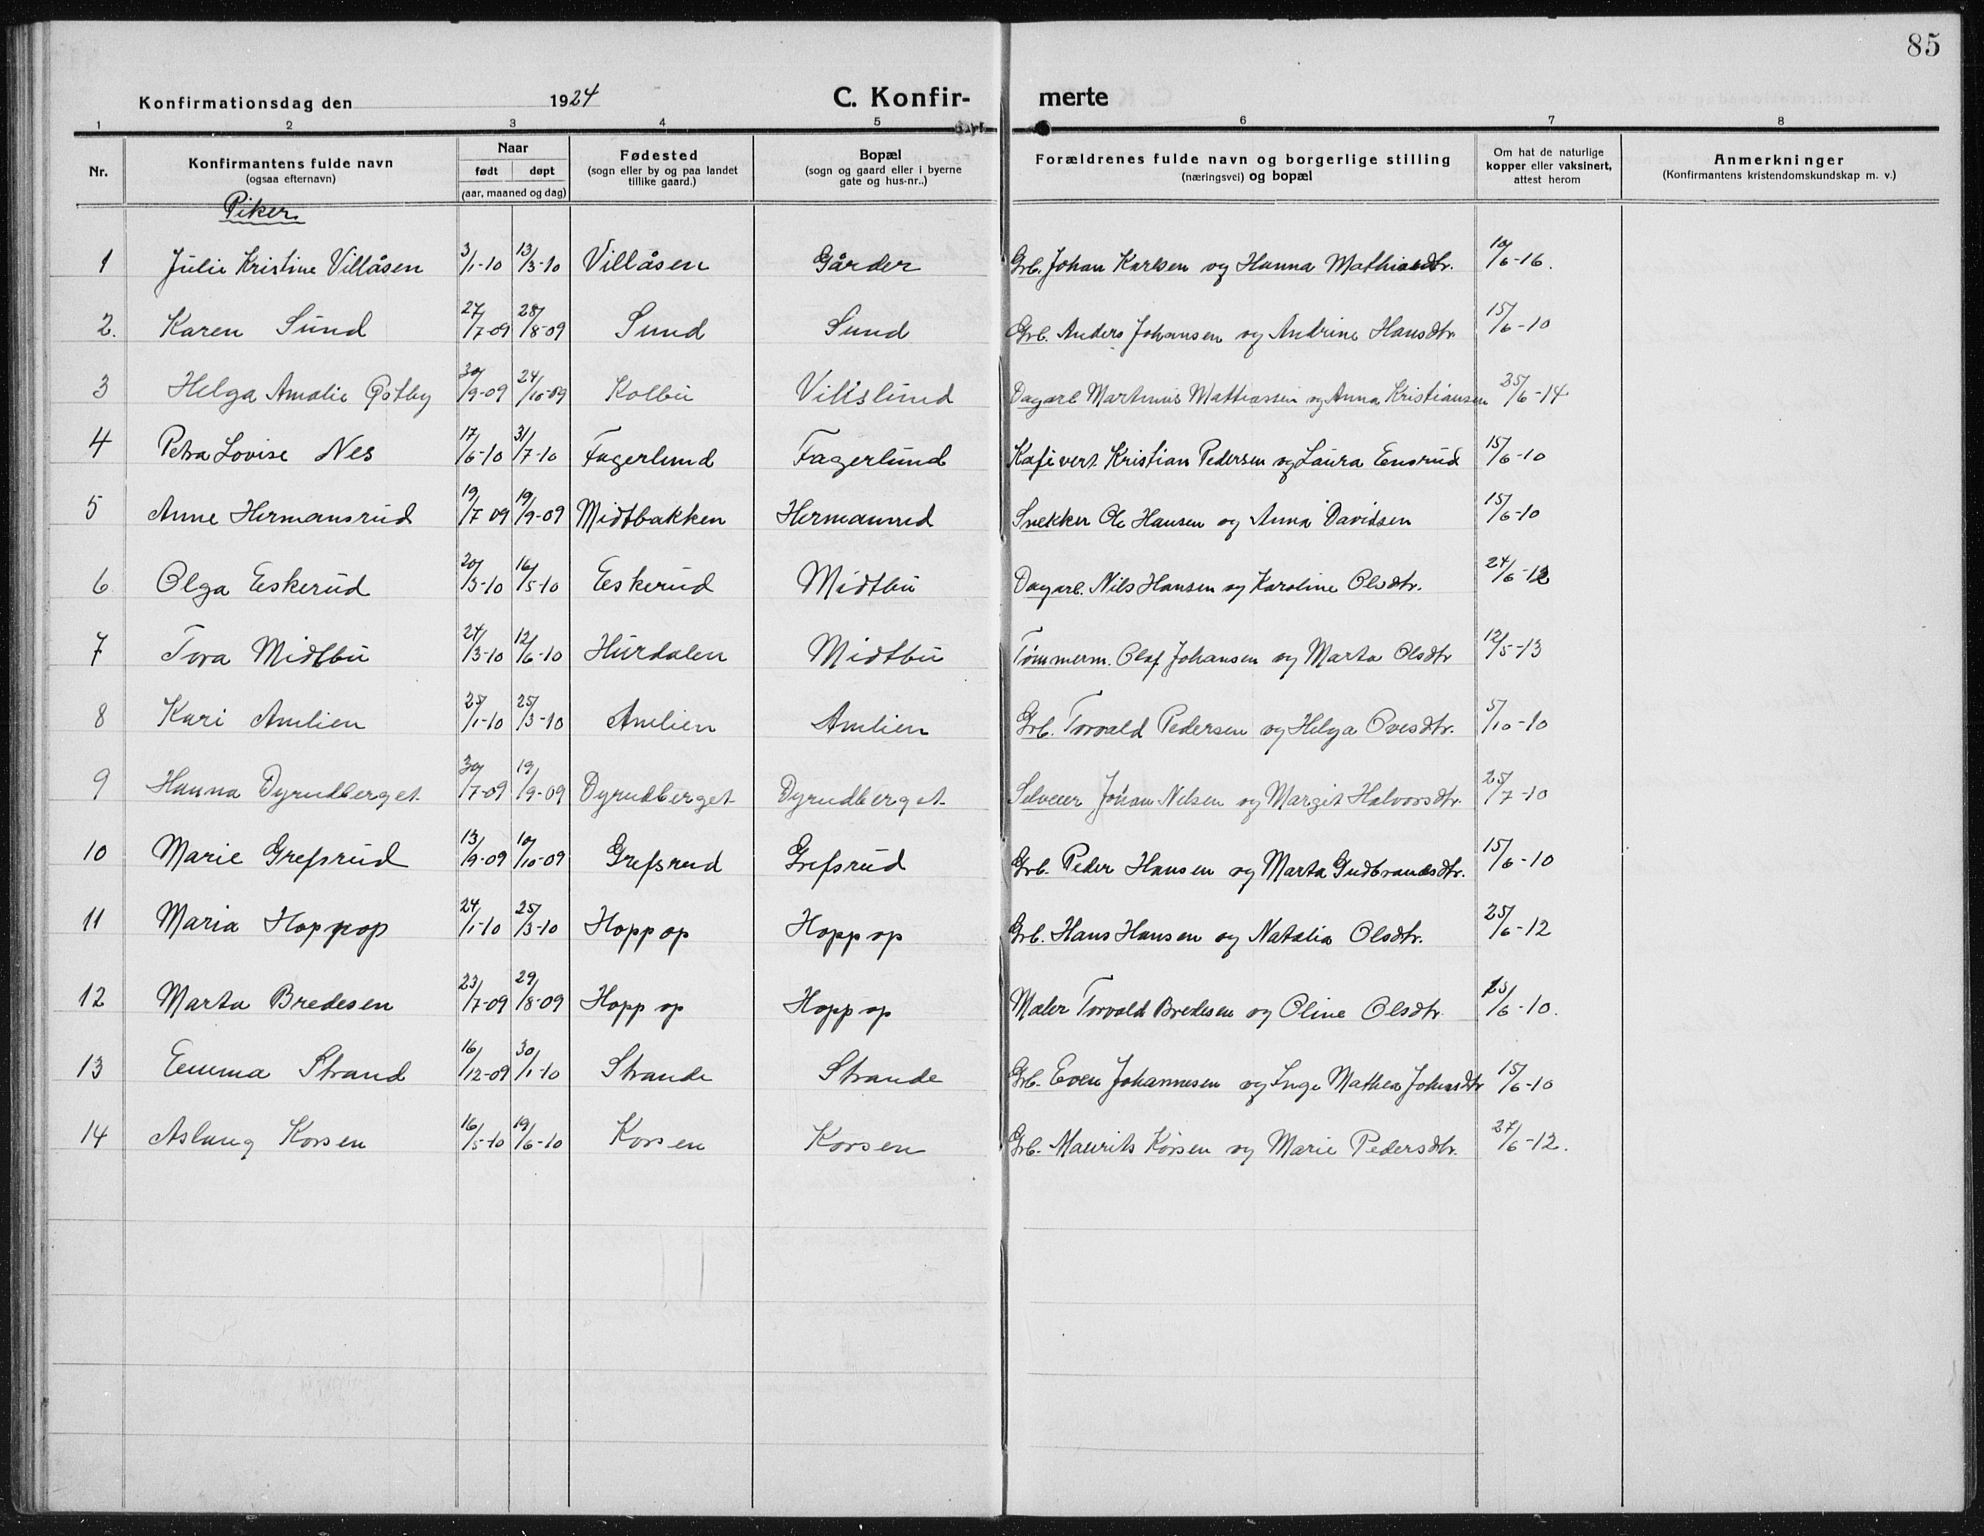 85
Konfirmationsdag den 1924 C. Konfir- merte
1 2 3 4 5 6 7 8
Nr. Konfirmantens fulde navn (ogsaa efternavn) Naar født døpt (aar, maaned og dag) Fødested (sogn eller by og paa landet tillike gaard.) Bopæl (sogn og gaard eller i byerne gate og hus-nr..) Forældrenes fulde navn og borgerlige stilling (næringsvei) og bopæl Om hat de naturlige kopper eller vaksinert, attest herom Anmerkninger (Konfirmantens kristendomskundskap m. v.)
Piker
1 Julie Kristine Villåsen 3/1-10 13/3-10 Villåsen Gårder Grb. Johan Karlsen og Hanna Mathiasdtr. 10/6-16.
2. Karen Sund 27/7-09 28/8-09 Sund Sund Grb. Anders Johansen og Andrine Hansdtr. 15/6-10
3 Helga Amalie Østby 30/9-09 24/10-09 Kolbu Villslund Dagarb Martinus Mattiassen og Anna Kristiansen 25/6-14
4 Petra Lovise Nes 17/6-10 31/7-10 Fagerlund Fagerlund Kafévert Kristian Pedersen og Laura Ensrud 15/6-10
5 Anne Hermansrud 19/7 09 19/9-09 Midtbakken Hermansrud Snekker Ole Hansen og Anna Davidsen 15/6-10
6 Olga Eskerud 20/3-10 16/5-10 Eskerud Midtbu Dagarb. Nils Hansen og Karoline Olsdtr. 24/6-12
7 Tora Midtbu 24/3-10 12/6-10 Hurdalen Midtbu Tømmerm. Olaf Johansen og Marta Olsdtr 12/5-13
8 Kari Amlien 25/1-10 25/3-10 Amlien Amlien Grb. Torvald Pedersen og Helga Ovesdtr. 5/10-10
9 Hanna Dyrudberget 30/7-09 19/9-09 Dyrudberget Dyrudberget Selveier Johan Nilsen og Margit Halvorsdtr. 25/7-10
10 Marie Grefsrud 13/9-09 10/10-09 Grefsrud Grefsrud Grb. Peder Hansen og Marta Gudbrandsdtr. 15/6-10
11 Maria Hoppop 24/1-10 25/3-10 Hoppop Hoppop Grb. Hans Hansen og Natalia Olsdtr. 25/6-12
12 Marta Bredesen 23/7-09 29/8-09 Hoppop Hoppop Maler Torvald Bredesen og Oline Olsdtr. 15/6-10.
13 Emma Strand 16/12-09 30/1-10 Strande Strande Grb. Even Johannesen og Inga Mathea Johansdtr 15/6-10
14 Aslaug Korsen 16/5-10 19/6-10 Korsen Korsen Grb. Maurits Korsen og Marie Pedersdtr. 27/6-12.